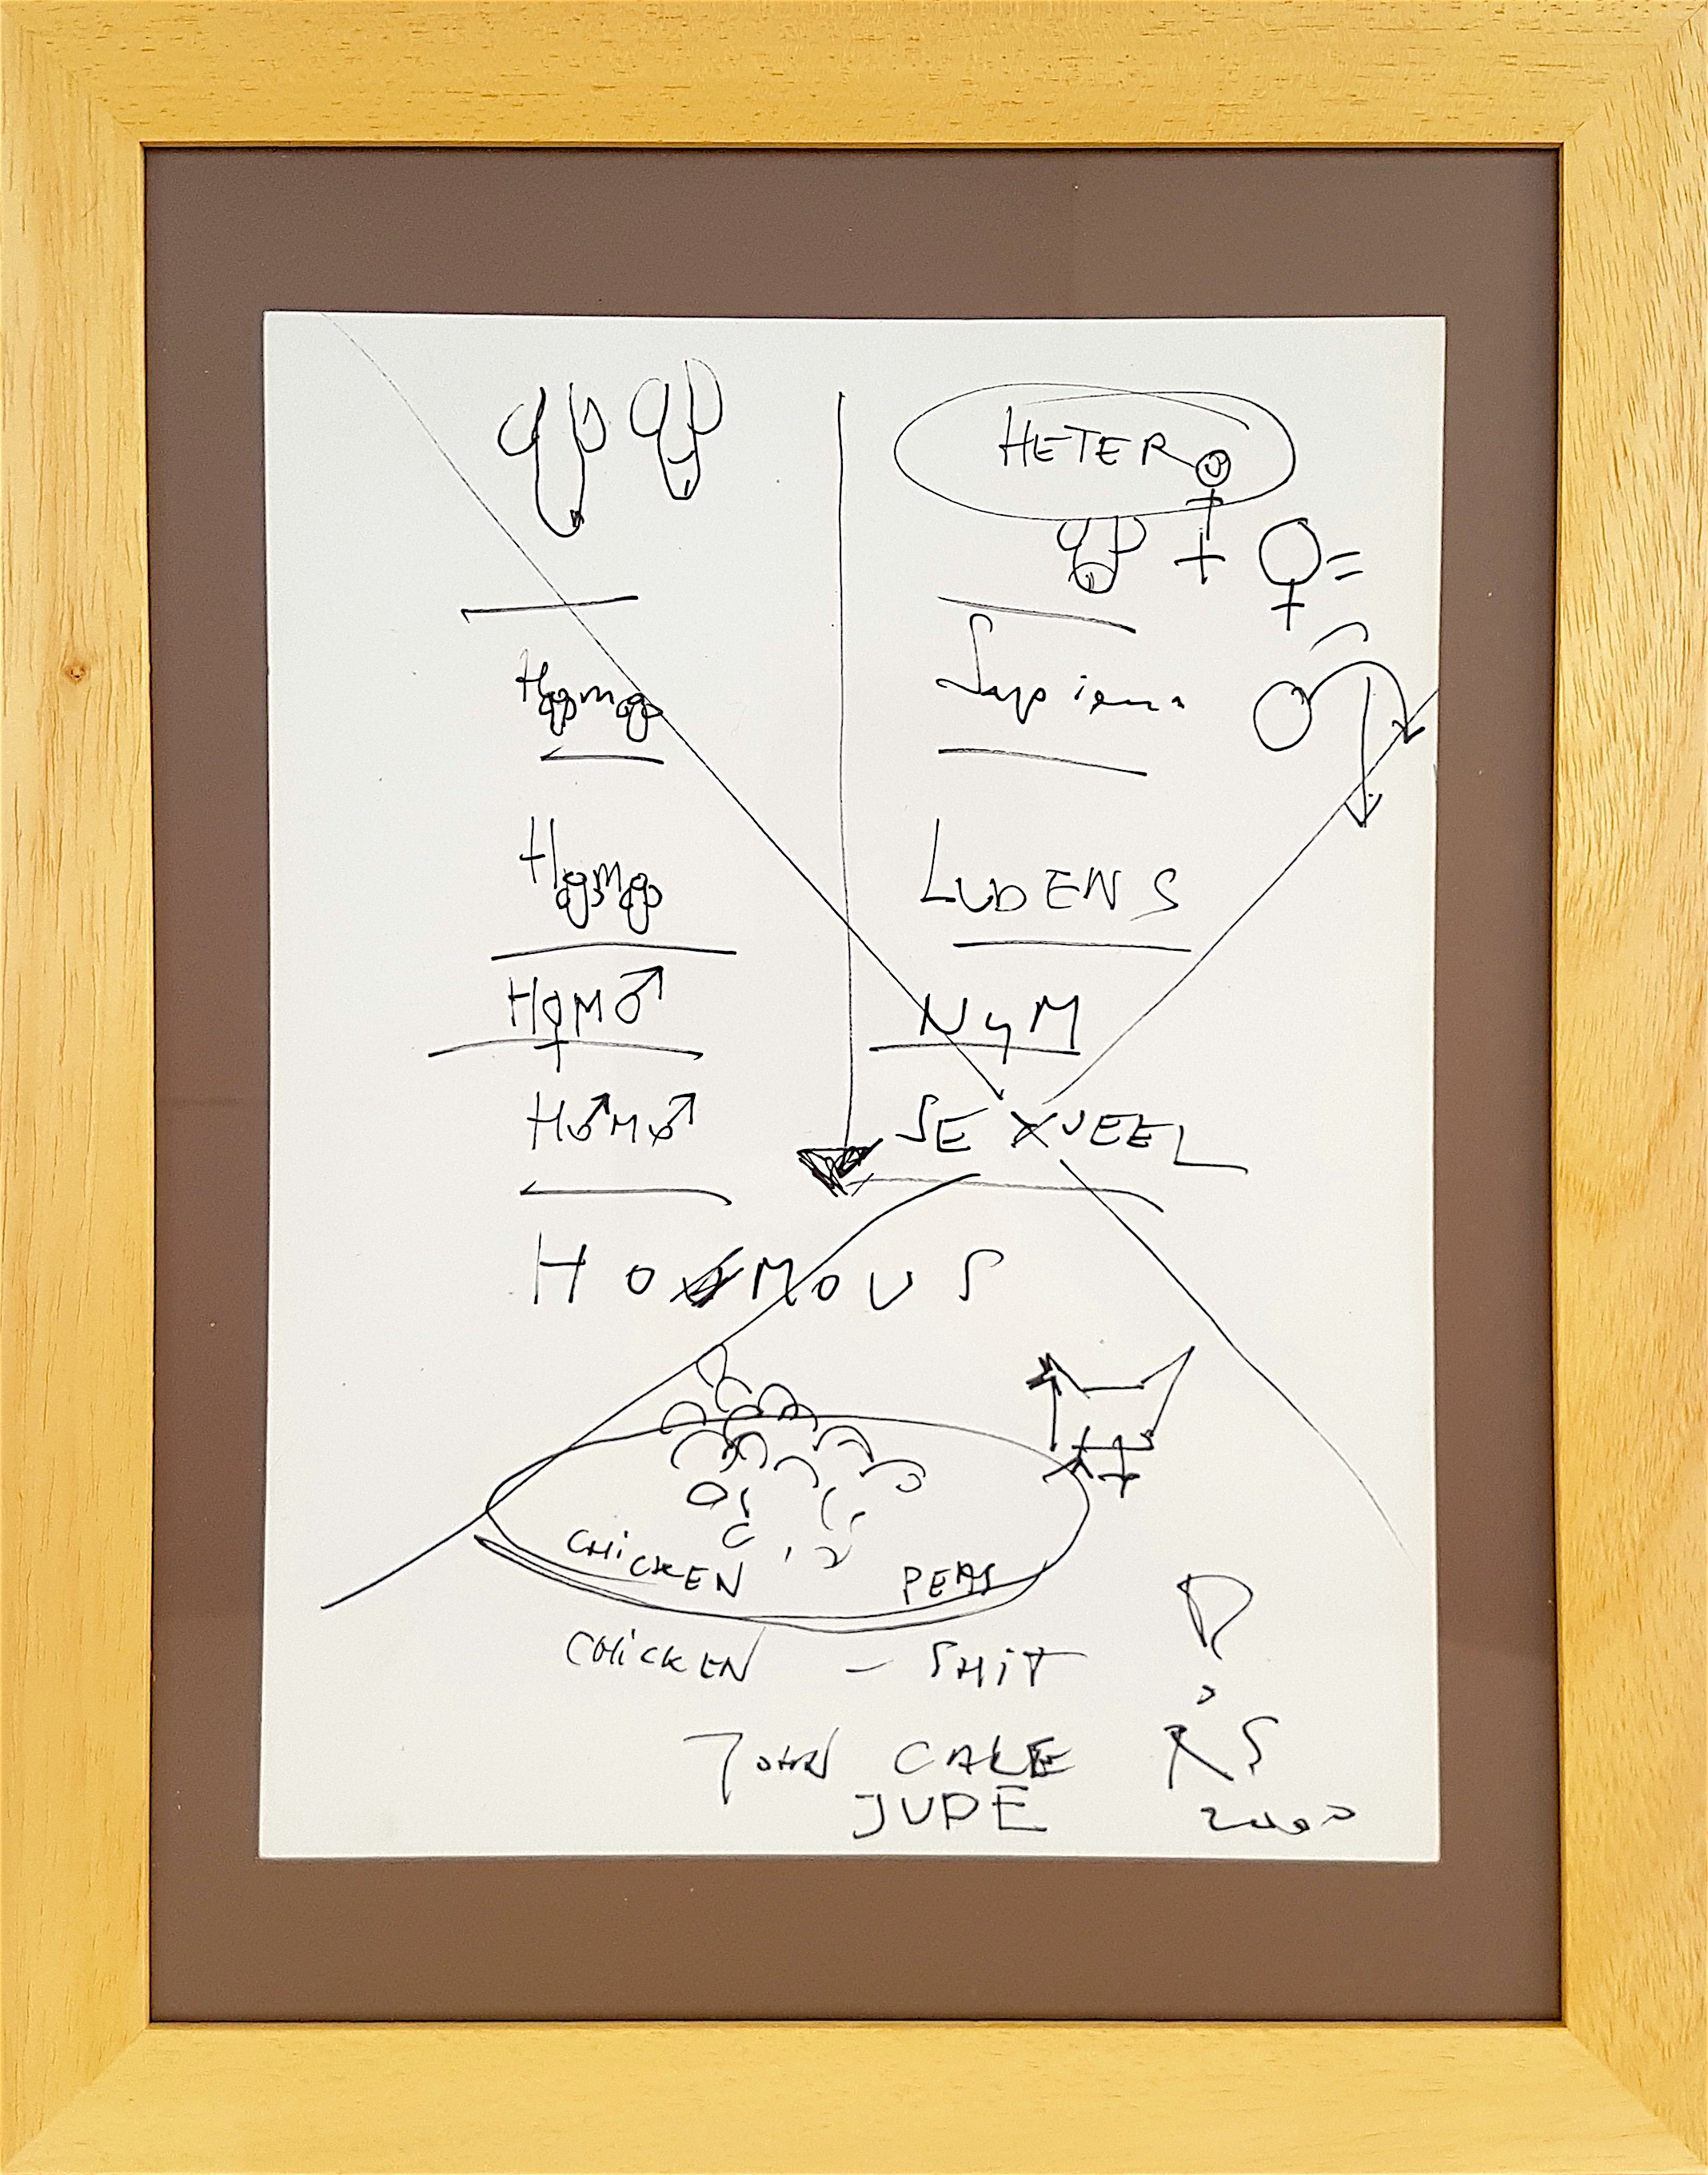 HETERO
Homo Sapiens
Homo LUDENS
HOMO NYM
HOMO SEXUEEL
HOMMOUS
CHICKEN PEAS
CHICKEN - SHIT
JOHN CALE
JUDE
RS
2000